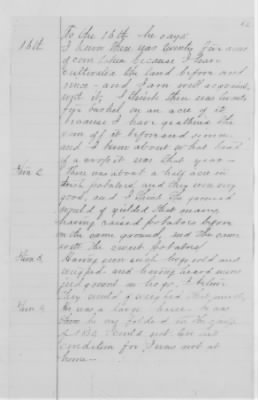 16th. To the 16th he says
I know there was twenty four acres
of corn taken because I have
cultivated the land before and
since and I am well acquainted
with it, I think there was twenty
five bushel on an acre of it
because I have gathered the
corn off it before and since
and I know about what kind
of a crop it was that year—
Item 2 There was about a half acre in
Irish potatoes, and they were very
good, and I think the ground
would of yielded that many
having raised potatoes before
on the same ground, and the same
with the sweet potatoes
Item 3 Having seen such hogs sold and
weighed and having heard mens
judgment on hogs, I believe
they would of weighed that much
Item 4 He was a large horse he was
by my father in the
of 186 I could not tell his
condition for I was not at
home—